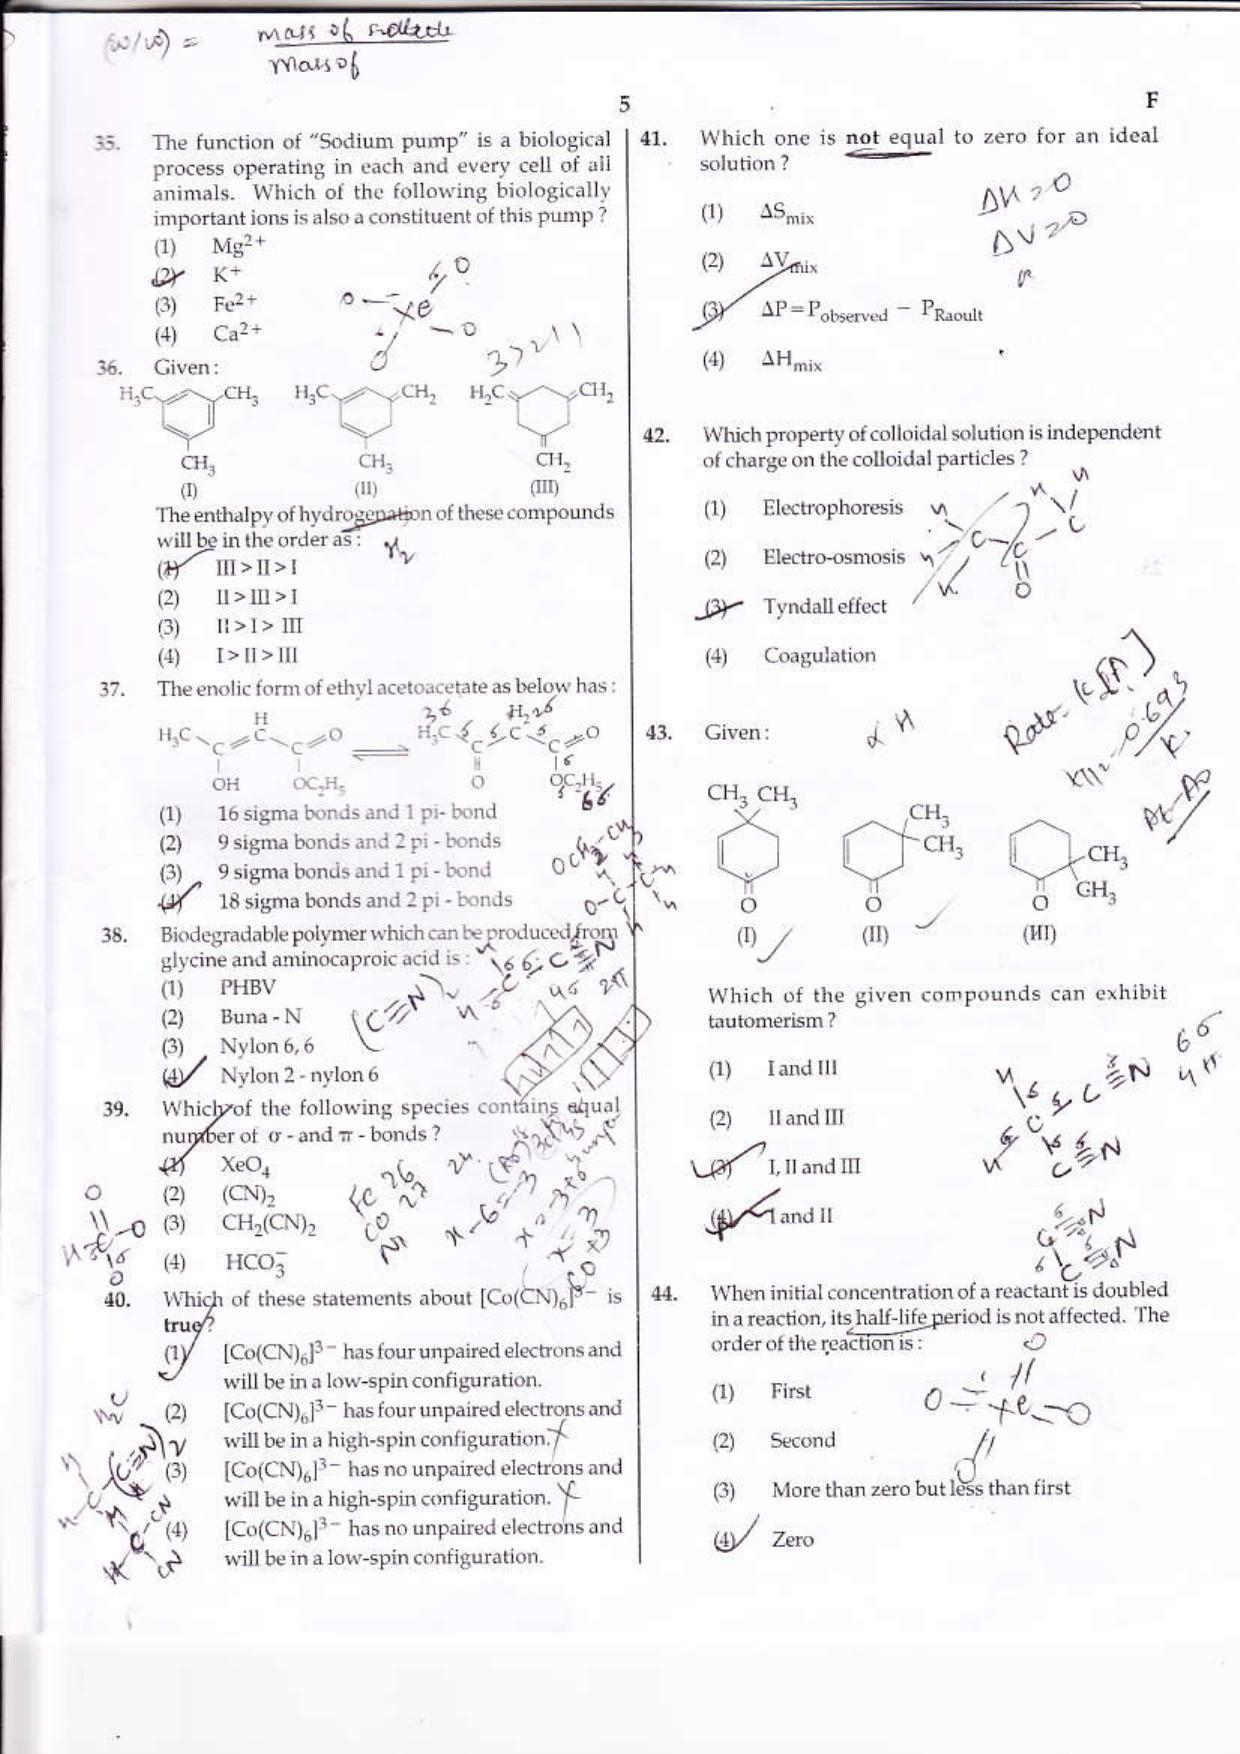 (w/w) = mass of solute
mass of
5
F
35. The function of "Sodium pump" is a biological
process operating in each and every cell of all
animals. Which of the following biologically
important ions is also a constituent of this pump ?
(1) Mg2+
(2) K+
(3) Fe2+
(4) Ca2+
36. Given :
H3C CH3 H3C CH2 H2C CH2
CH3 CH3 CH2
(I) (II) (III)
The enthalpy of hydrogenation of these compounds
will be in the order as :
(1) III > II > I
(2) II > III > I
(3) II > I > III
(4) I > II > III
37. The enolic form of ethyl acetoacetate as below has :
H
H3C C C C O H3C C C C O
OH OC2H5 O OC2H5
(1) 16 sigma bonds and 1 pi- bond
(2) 9 sigma bonds and 2 pi - bonds
(3) 9 sigma bonds and 1 pi - bond
(4) 18 sigma bonds and 2 pi - bonds
38. Biodegradable polymer which can be produced from
glycine and aminocaproic acid is :
(1) PHBV
(2) Buna - N
(3) Nylon 6, 6
(4) Nylon 2 - nylon 6
39. Which of the following species contains equal
number of σ - and π - bonds ?
(1) XeO4
(2) (CN)2
(3) CH2(CN)2
(4) HCO3−
40. Which of these statements about [Co(CN)6]3− is
true ?
(1) [Co(CN)6]3− has four unpaired electrons and
will be in a low-spin configuration.
(2) [Co(CN)6]3− has four unpaired electrons and
will be in a high-spin configuration.
(3) [Co(CN)6]3− has no unpaired electrons and
will be in a high-spin configuration.
(4) [Co(CN)6]3− has no unpaired electrons and
will be in a low-spin configuration.
41. Which one is not equal to zero for an ideal
solution ?
(1) ΔSmix
(2) ΔVmix
(3) ΔP = Pobserved − PRaoult
(4) ΔHmix
ΔH = 0
ΔV = 0
42. Which property of colloidal solution is independent
of charge on the colloidal particles ?
(1) Electrophoresis
(2) Electro-osmosis
(3) Tyndall effect
(4) Coagulation
43. Given :
CH3 CH3
CH3
CH3
CH3
CH3
O O O
(I) (II) (III)
Which of the given compounds can exhibit
tautomerism ?
(1) I and III
(2) II and III
(3) I, II and III
(4) I and II
44. When initial concentration of a reactant is doubled
in a reaction, its half-life period is not affected. The
order of the reaction is :
(1) First
(2) Second
(3) More than zero but less than first
(4) Zero